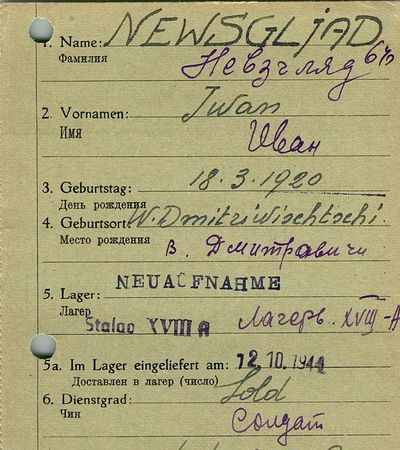 1. Name: NEWSGLJAD
Фамилия
Невзгляд
2. Vornamen: Iwan
Имя
Иван
3. Geburtstag: 18.3.1920
День рождения
4. Geburtsort: W. Dmitriwischtschi.
Место рождения
В. Дмитравичи
NEUAUFNAHME
5. Lager:
Лагер
Stalag XVIII A Лагерь. XVIII-А
5a. Im Lager eingeliefert am: 12.10.1944
Доставлен в лагер (число)
6. Dienstgrad: Sold
Чин
Солдат